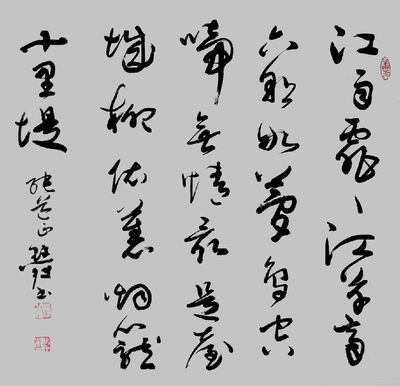 江雨霏〻江草齊
六朝如夢鳥空
啼無情最是臺
城柳依舊烟籠
十里堤
書